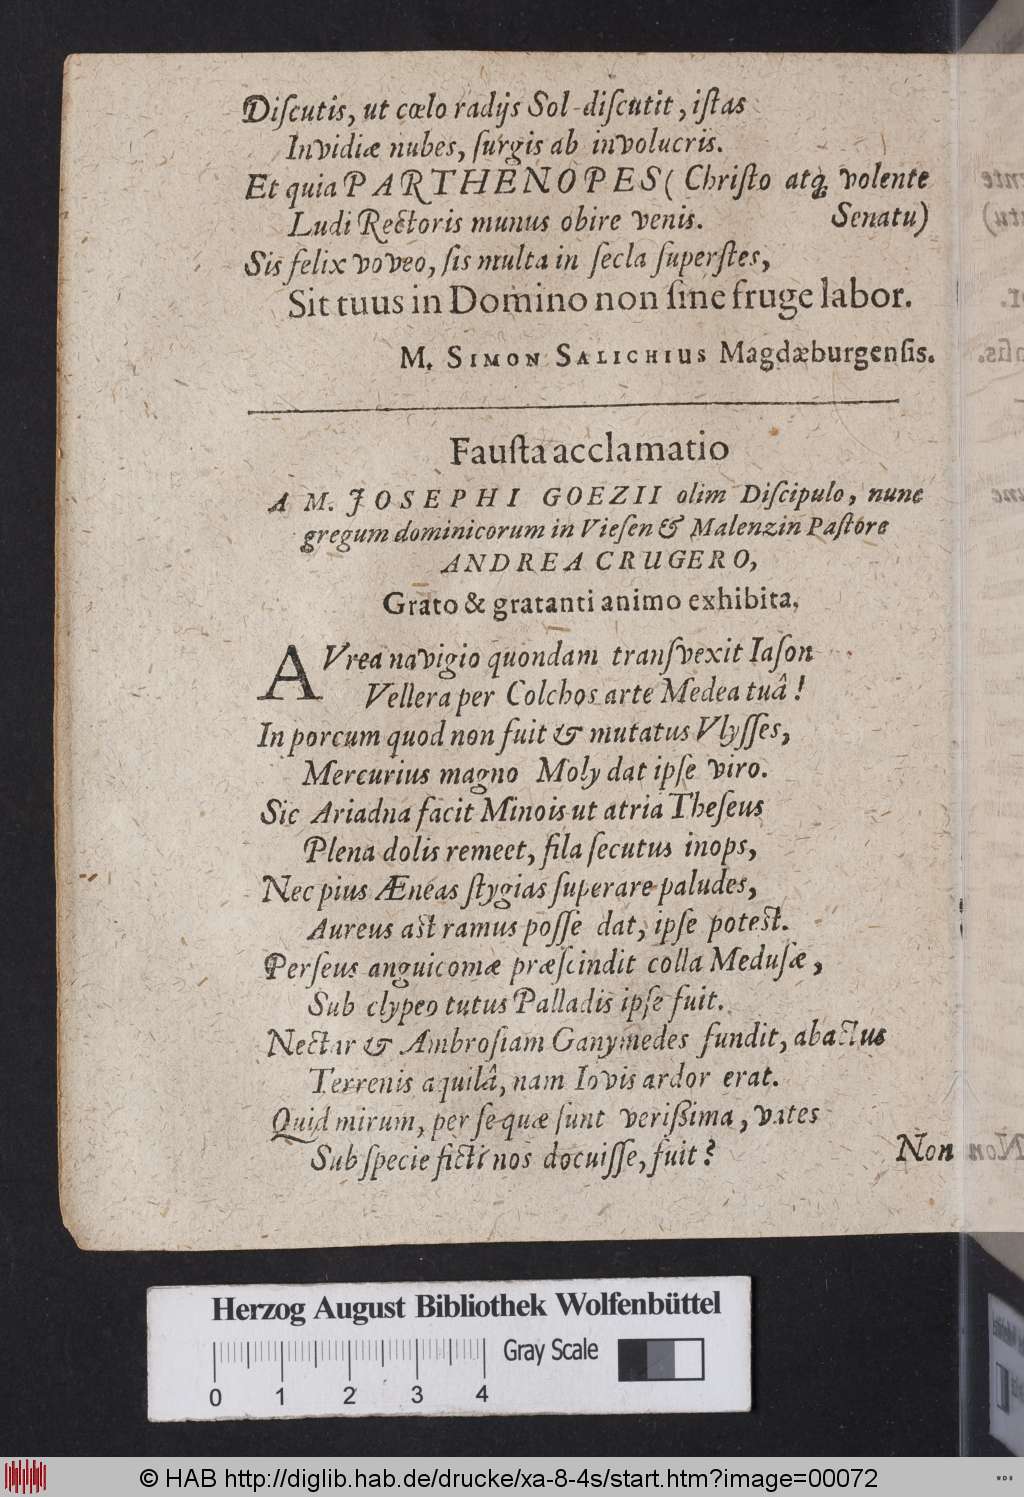 Diſcutis, ut cœlo radijs Sol diſcutit, iſtas
Invidiæ nubes, ſurgis ab involucris.
Et quia PARTHENOPES (Chriſto atq; volente
Ludi Rectoris munus obire venis. Senatu)
Sis felix voveo, ſis multa in ſecla ſuperſtes,
Sit tuus in Domino non ſine fruge labor.
M. SIMON SALICHIUS Magdæburgenſis.
Fauſta acclamatio
A M. JOSEPHI GOEZII olim Diſcipulo, nunc
gregum dominicorum in Vieſen & Malenzin Paſtore
ANDREA CRUGERO,
Grato & gratanti animo exhibita.
AVrea navigio quondam tranſvexit Iaſon
Vellera per Colchos arte Medea tuâ!
In porcum quod non fuit & mutatus Vlyſſes,
Mercurius magno Moly dat ipſe viro.
Sic Ariadna facit Minois ut atria Theſeus
Plena dolis remeet, fila ſecutus inops,
Nec pius Æneas ſtygias ſuperare paludes,
Aureus aſt ramus poſſe dat, ipſe poteſt.
Perſeus anguicomæ præſcindit colla Meduſæ,
Sub clypeo tutus Palladis ipſe fuit.
Nectar & Ambroſiam Ganymedes fundit, abactus
Terrenis aquilâ, nam Iovis ardor erat.
Quid mirum, per ſe quæ ſunt verißima, vates
Sub ſpecie ficti nos docuiſſe, fuit?
Non
Herzog August Bibliothek Wolfenbüttel
Gray Scale
0 1 2 3 4
© HAB http://diglib.hab.de/drucke/xa-8-4s/start.htm?image=00072